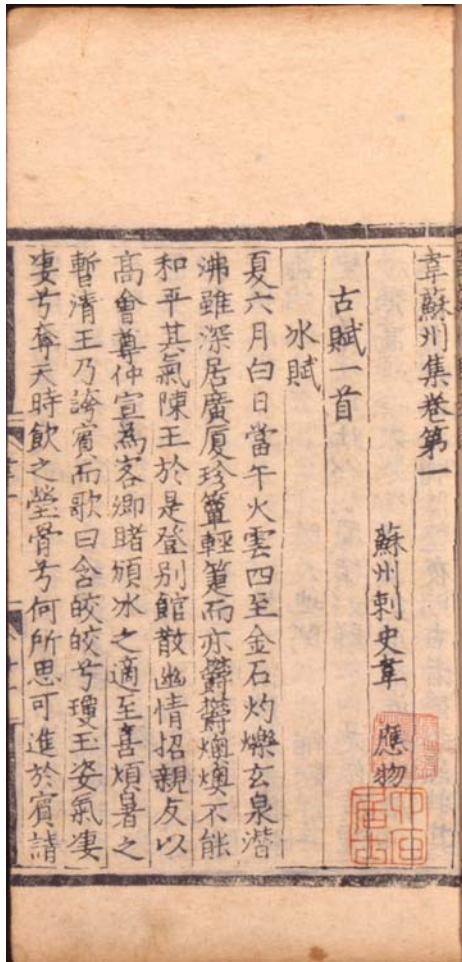 韋蘇州集卷第一
蘇州刺史韋 應物
古賦一首
冰賦
夏六月白日當午火雲四至金石灼爍玄泉潛
沸雖深居廣厦珍簟輕箑而亦欝欝燠燠不能
和平其氣陳王於是登别館散幽情招親友以
高會尊仲宣為客卿睹頒冰之適至喜煩暑之
暫清王乃誇賓而歌曰含皎皎兮瓊玉姿氣凄
凄兮奪天時飲之瑩骨兮何所思可進於賓請
居士